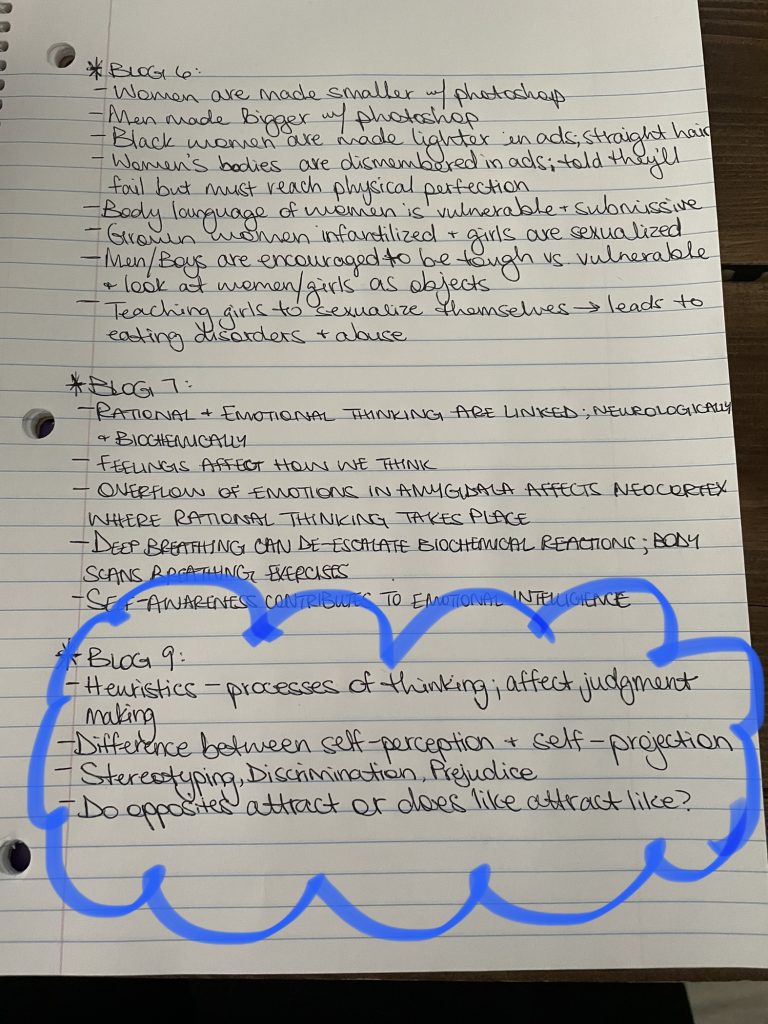 * BLOG 6:
- Women are made smaller w/ photoshop
- Men made Bigger w/ photoshop
- Black women are made lighter in ads; straight hair
- Women's bodies are dismembered in ads; told they'll
fail but must reach physical perfection
- Body language of women is vulnerable + submissive
- Grown women infantilized + girls are sexualized
- Men/Boys are encouraged to be tough vs vulnerable
+ look at women/girls as objects
- Teaching girls to sexualize themselves → leads to
eating disorders + abuse
* BLOG 7:
- RATIONAL + EMOTIONAL THINKING ARE LINKED; NEUROLOGICALLY
+ BIOCHEMICALLY
- FEELINGS AFFECT HOW WE THINK
- OVERFLOW OF EMOTIONS IN AMYGDALA AFFECTS NEOCORTEX
WHERE RATIONAL THINKING TAKES PLACE
- DEEP BREATHING CAN DE-ESCALATE BIOCHEMICAL REACTIONS; BODY
SCANS BREATHING EXERCISES
- SELF-AWARENESS CONTRIBUTES TO EMOTIONAL INTELLIGIENCE
* BLOG 9:
- Heuristics - processes of thinking; affect judgment
making
- Difference between self-perception + self-projection
- Stereotyping, Discrimination, Prejudice
- Do opposites attract or does like attract like?